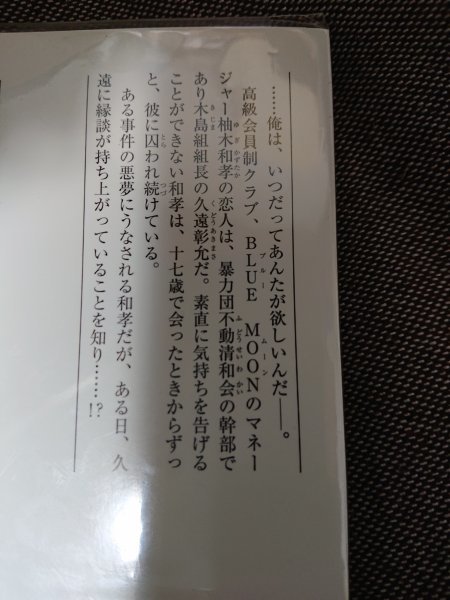 ……俺は、いつだってあんたが欲しいんだ――。
高級会員制クラブ、BLUE MOONのマネー
ジャー柚木和孝の恋人は、暴力団不動清和会の幹部で
あり木島組組長の久遠彰允だ。素直に気持ちを告げる
ことができない和孝は、十七歳で会ったときからずっ
と、彼に囚われ続けている。
ある事件の悪夢にうなされる和孝だが、ある日、久
遠に縁談が持ち上がっていることを知り……!?